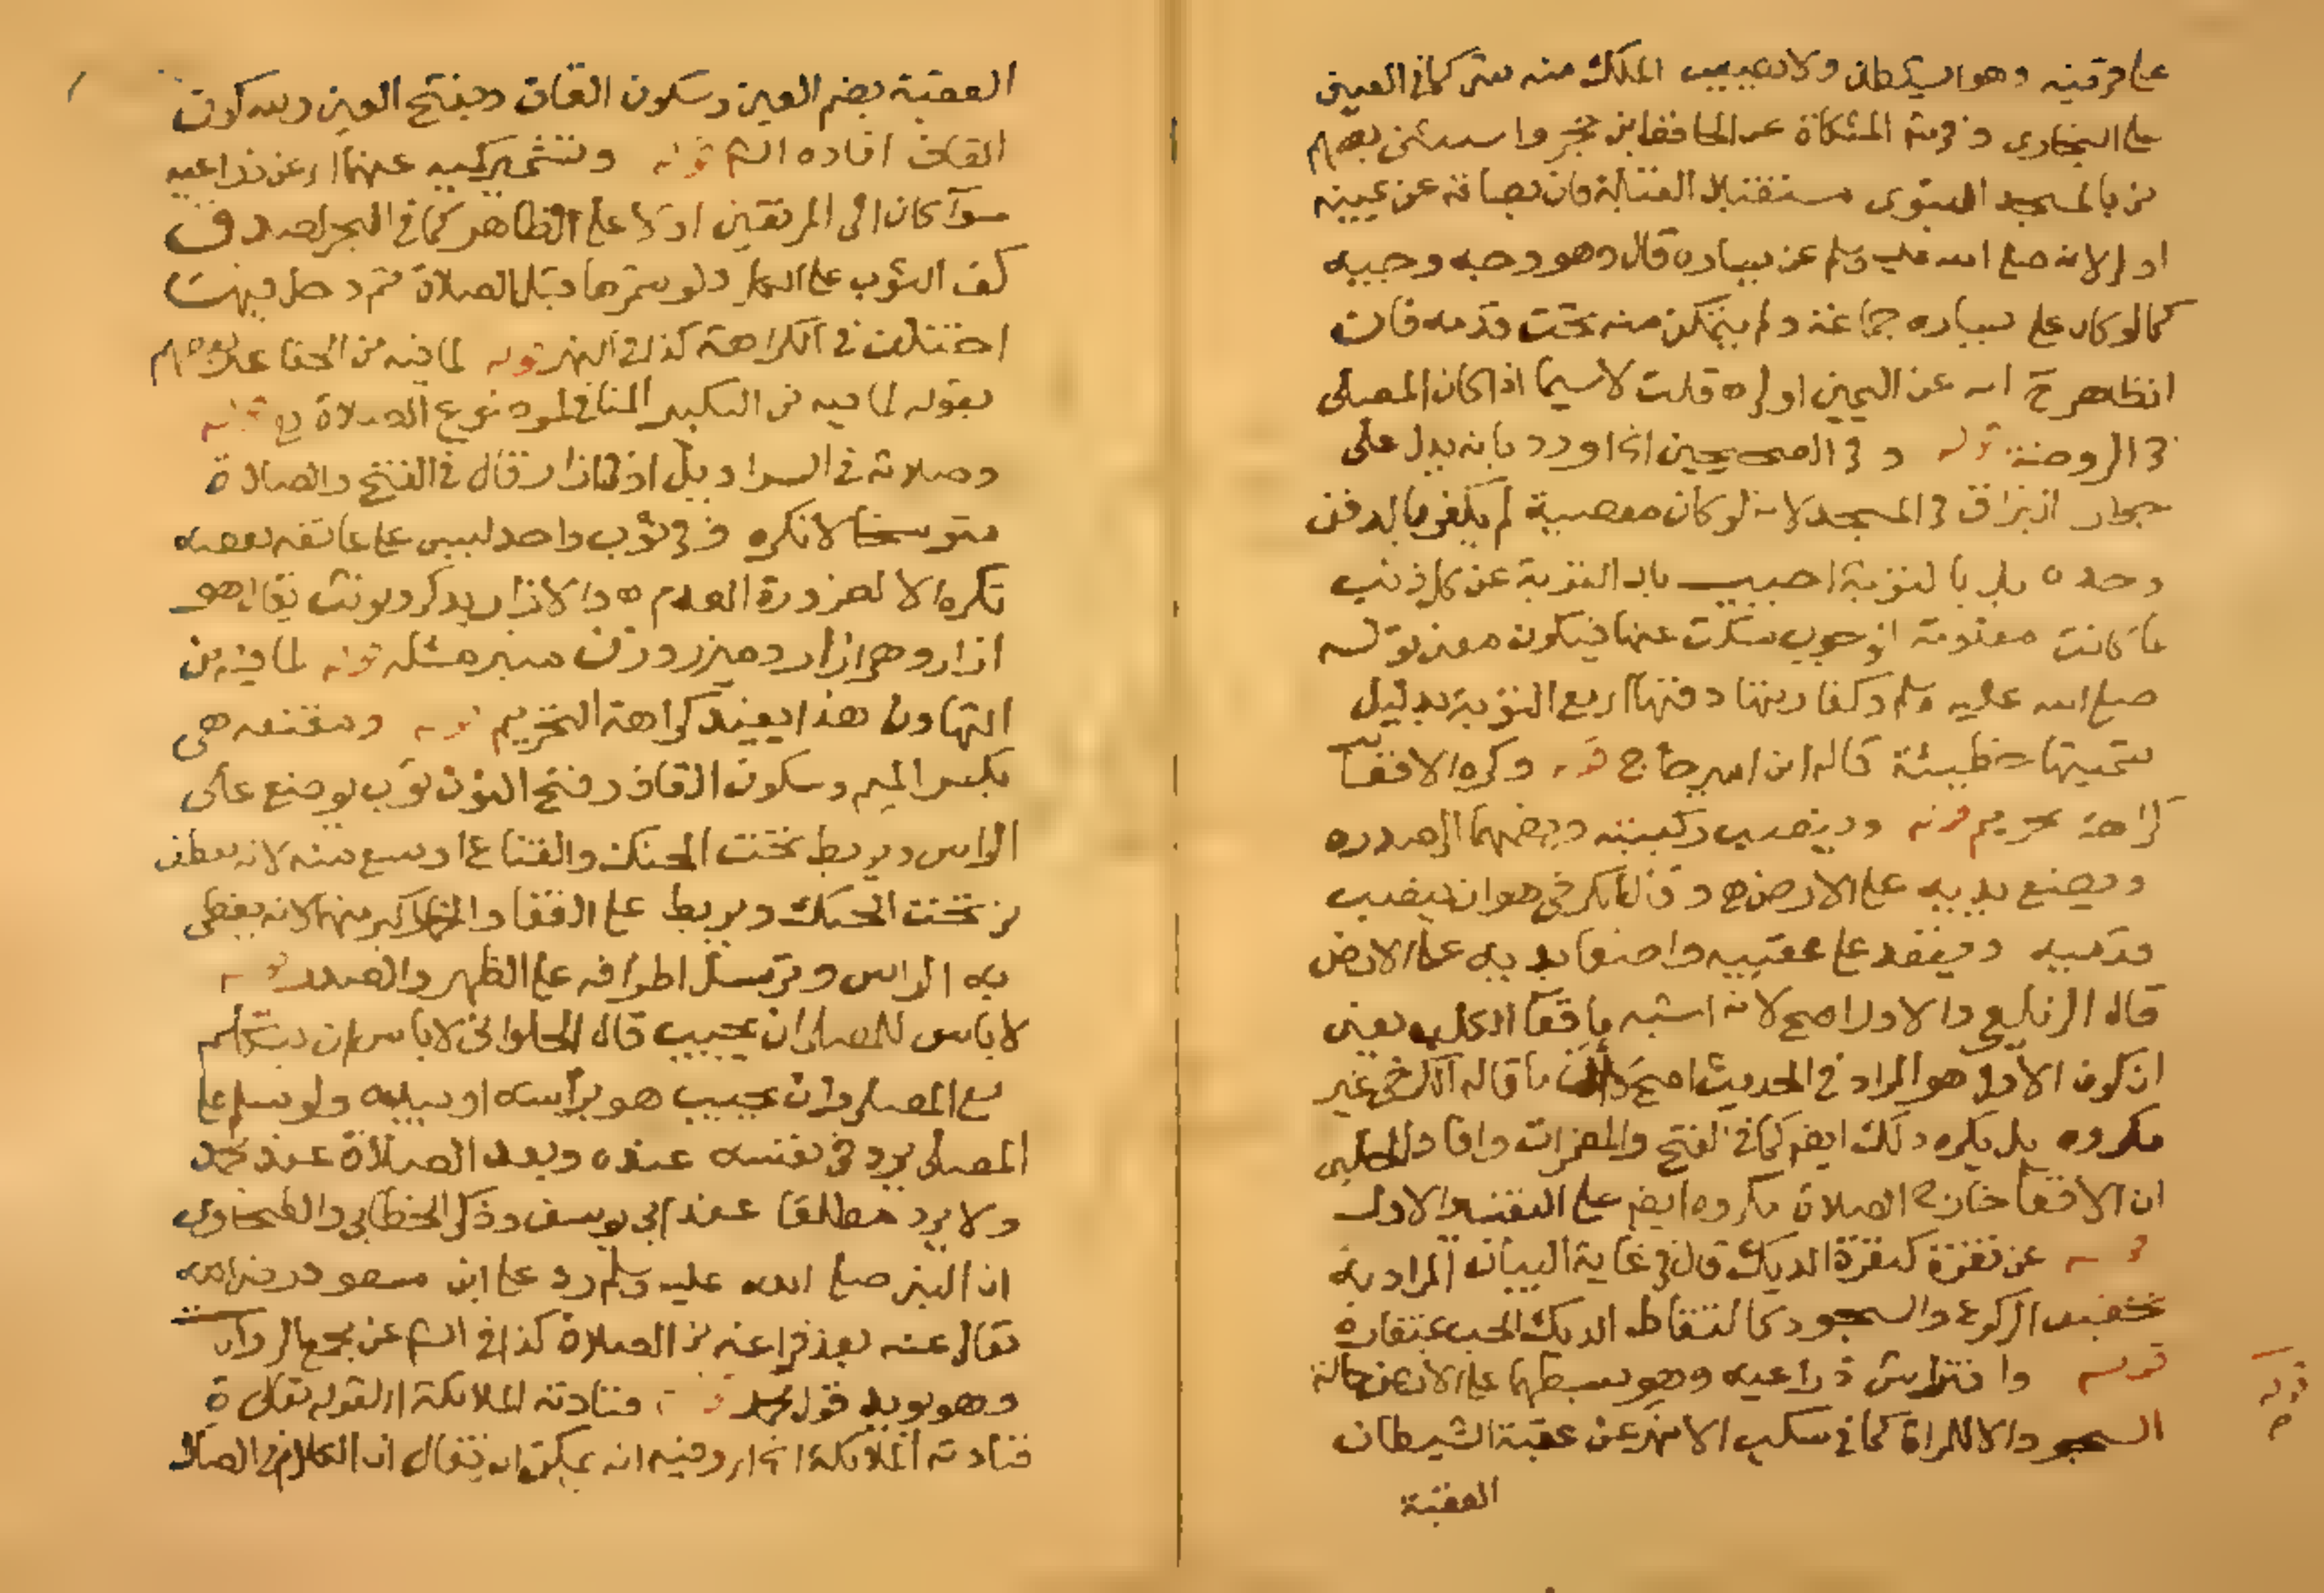 على قرينه وهو الشيطان ولا يصيب الملك منه شئ كما في العيني
على البخاري وفي مرقاة المشكاة عن الحافظ ابن حجر واستثنى بعضهم
من بالمسجد النبوي مستقبل القبلة فان بصاقه عن يمينه
اولى لانه صلى الله عليه وسلم عن يساره قال وهو وجه وجيه
كما لو كان على يساره جماعة ولم يتمكن منه تحت قدمه فان
الظاهر ح انه عن اليمين اولى اه قلت لا سيما اذا كان المصلى
في الروضة قوله وفي الصحيحين الخ اورد بانه يدل على
جواز البزاق في المسجد لانه لو كان معصية لم يكفر بالدفن
وحده بل بالتوبة اجيب بان التوبة عن كل ذنب
ما كانت معلومة الوجوب سكت عنها فيكون معنى قوله
صلى الله عليه وسلم وكفارتها دفنها اي مع التوبة بدليل
تسميتها خطيئة قاله ابن امير حاج قوله وكره الاقعا
كراهة تحريم قوله وينصب ركبتيه ويضمهما الى صدره
ويضع يديه على الارض اه وقال الكرخي هو ان ينصب
قدميه ويقعد على عقبيه واضعا يديه على الارض
قال الزيلعي والاول اصح لانه اشبه باقعا الكلب يعني
ان كون الاول هو المراد في الحديث اصح لا ان ما قاله الكرخي غير
مكروه بل يكره ذلك ايضا كما في الفتح والمضمرات وافاد الحلبي
ان الاقعا خارج الصلاة مكروه ايضا على التفسير الاول
قوله عن نقرة كنقرة الديك قال في غاية البيان المراد به
تخفيف الركوع والسجود كالتقاط الديك الحب بمنقاره
قوله وافتراش ذراعيه وهو بسطهما على الارض حالة
السجود الا للمراة كما في سكب الانهر عن عقبة الشيطان
العقبة
قوله
العقبة بضم العين وسكون القاف وبفتح العين وسكون
القاف افاده الش قوله وتشمير كميه عنهما اي عن ذراعيه
سوآ كان الى المرفقين اولا على الظاهر كما في البحر لصدق
كف الثوب على الكل ولو شمرها قبل الصلاة ثم دخل فيها
اختلف في الكراهة كذا في النهر قوله لما فيه من الجفا علل بعضهم
بقوله لما فيه من التكبر المنافي لموضوع الصلاة قوله
وصلاته في السراويل او في ازار قال في الفتح والصلاة
متوشحا لا تكره وفي ثوب واحد ليس على عاتقه بعضه
تكره الا لضرورة العدم اه والازار يذكر ويونث يقال هو
ازار وهي ازار وميزر وزن منبر مثله قوله لما فيه من
التهاون هذا يفيد كراهة التحريم قوله ومقنعه هى
بكسر الميم وسكون القاف وفتح النون ثوب يوضع على
الراس ويربط تحت الحنك والقناع اوسع منه لانه يعطف
من تحت الحنك ويربط على القفا والخمار اكبر منهما لانه يغطى
به الراس وترسل اطرافه على الظهر والصدر قوله
لا باس للمصلى ان يجيب قال الحلواني لا باس ان يتكلم
مع المصلى وان يجيب هو براسه او بيده ولو سلم على
المصلى يرد في نفسه عنده وبعد الصلاة عند محمد
ولا يرد مطلقا عند ابي يوسف وذكر الخطابي والطحاوي
ان النبي صلى الله عليه وسلم رد على ابن مسعود رضى الله
تعالى عنه بعد فراغه من الصلاة كذا في الش عن مجمع الروايات
وهو يويد قول محمد قوله فنادته الملائكة اى لقوله تعالى
فنادته الملائكة الخ اى وفيه انه يمكن ان يقال ان الكلام في الصلا